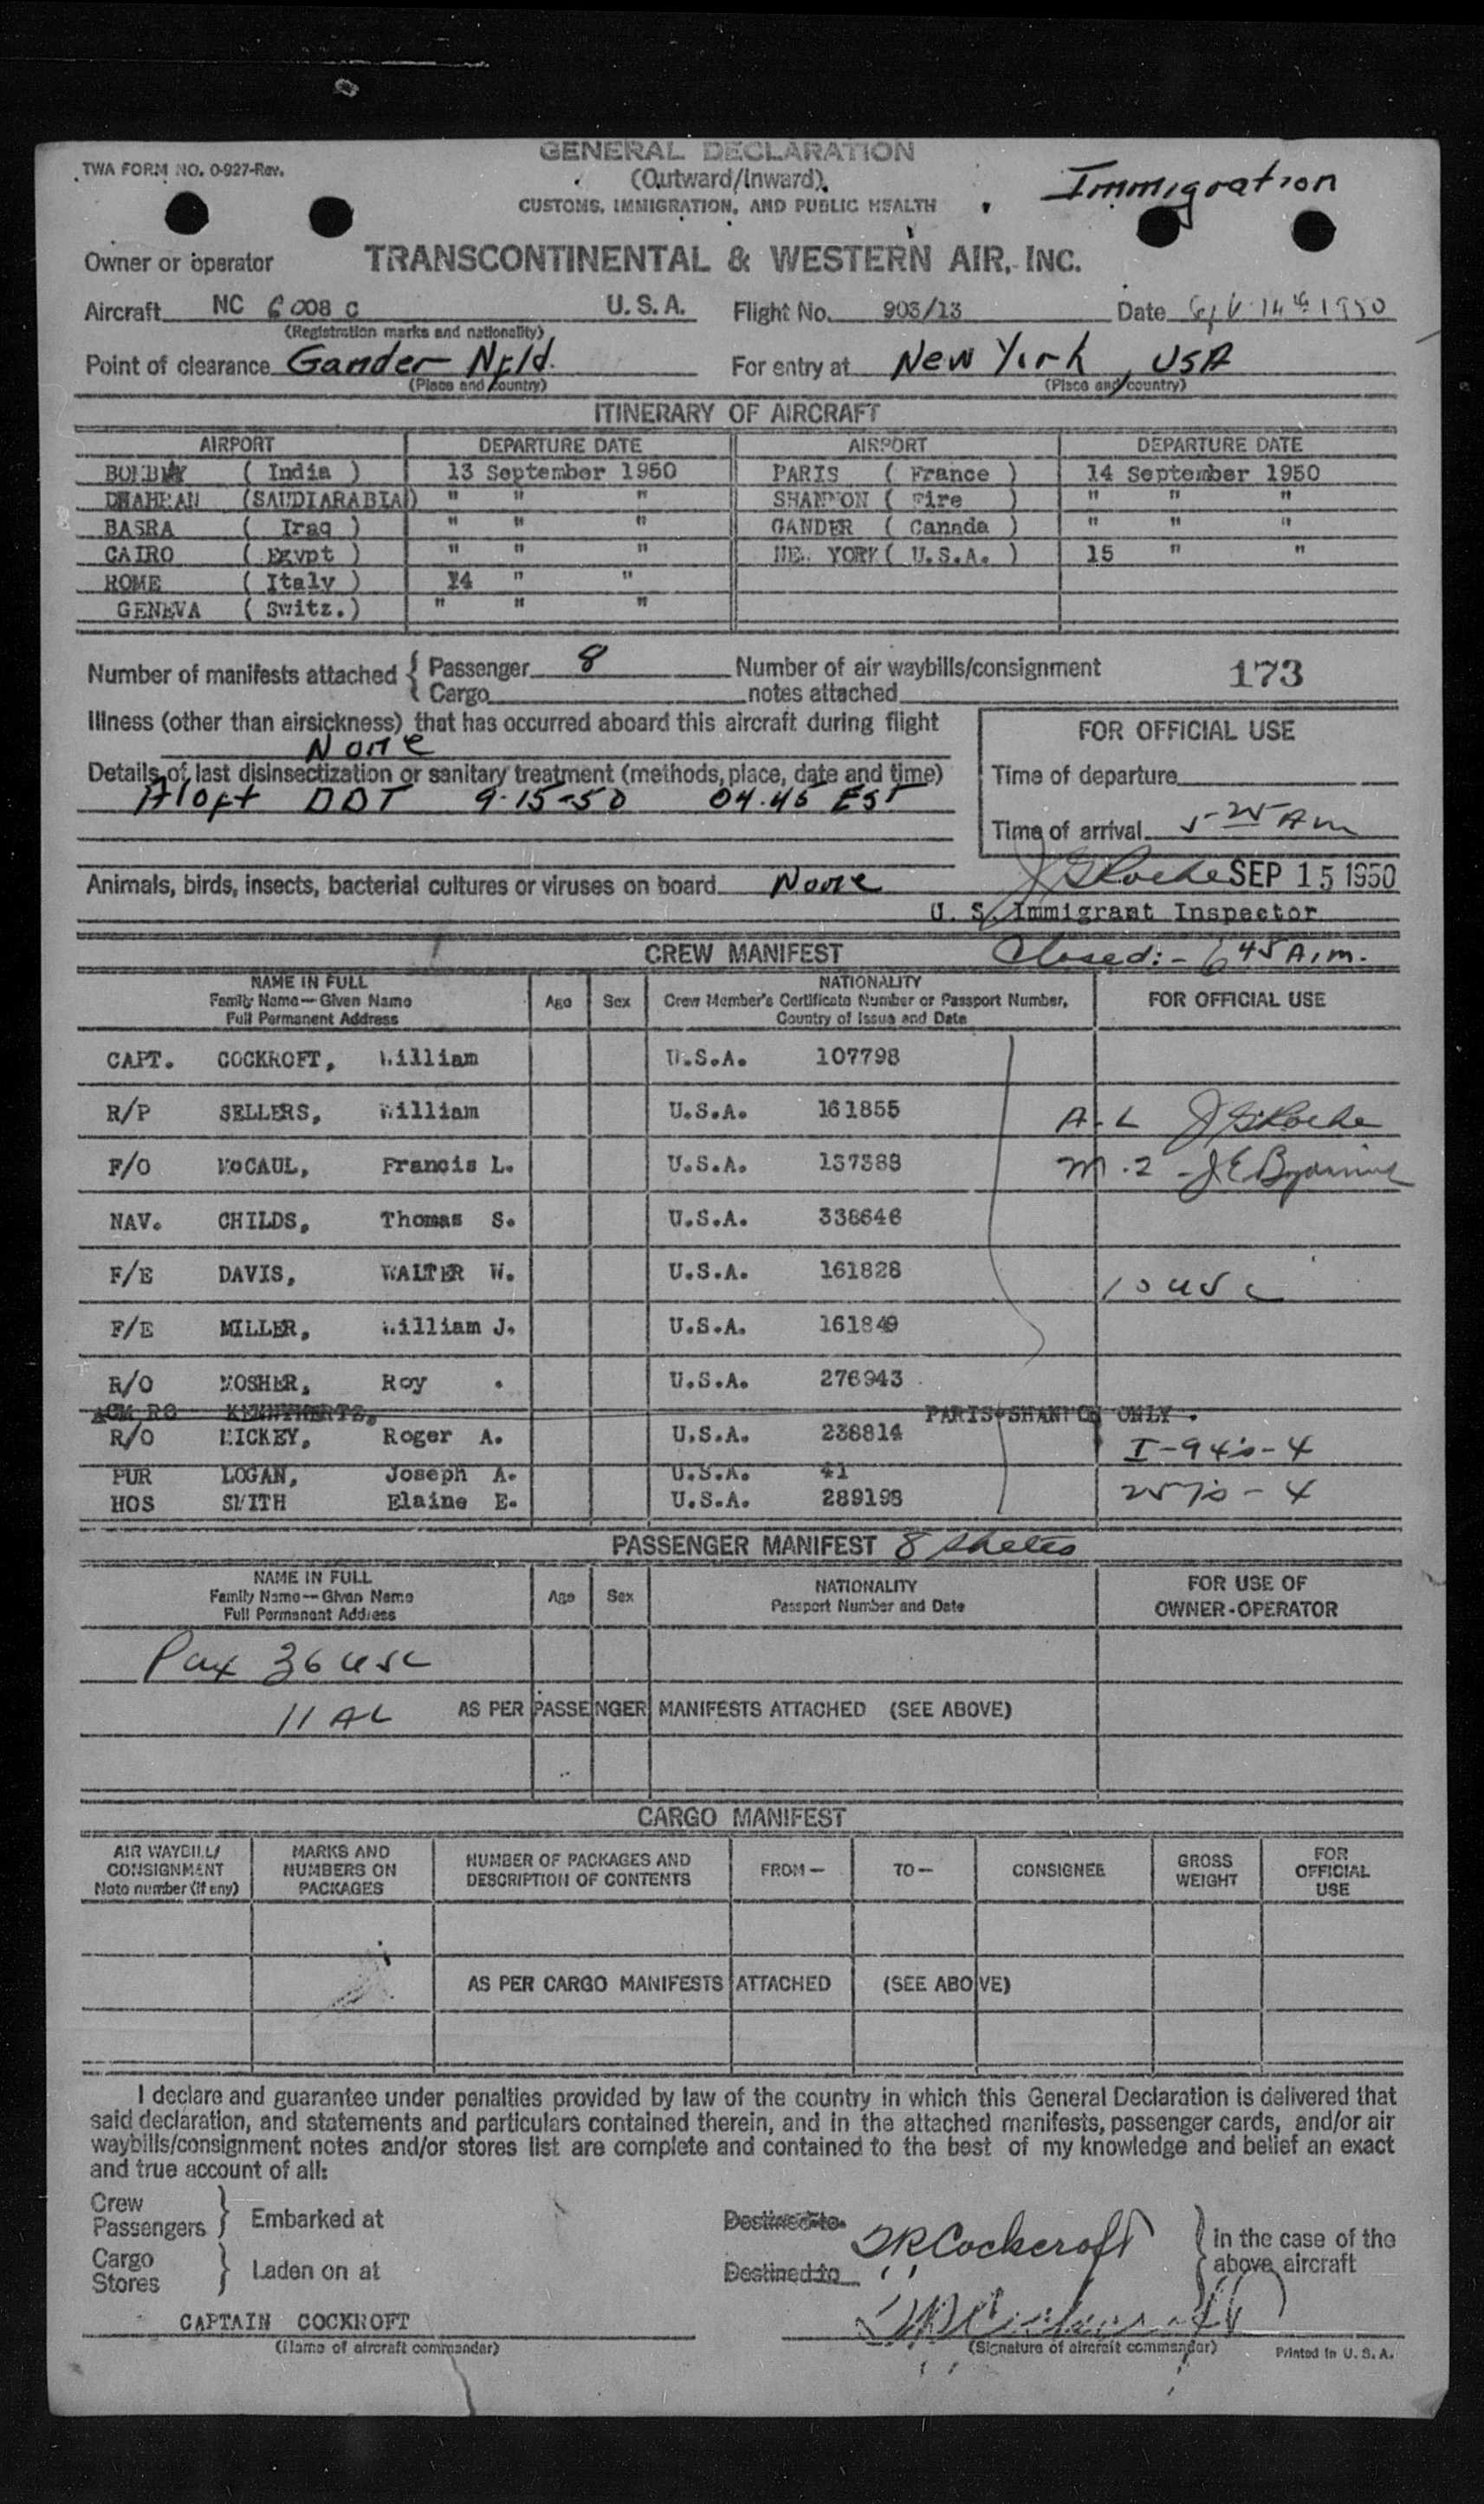 GENERAL DECLARATION
TWA FORM NO. 0-927-Rev.
(Outward/Inward)
Immigration
CUSTOMS, IMMIGRATION, AND PUBLIC HEALTH
Owner or operator TRANSCONTINENTAL & WESTERN AIR, INC.
Aircraft NC 6008 C U.S.A. Flight No. 903/13 Date 14th 1950
(Registration marks and nationality)
Point of clearance Gander Nfld. For entry at New York, USA
(Place and country) (Place and country)
ITINERARY OF AIRCRAFT
AIRPORT DEPARTURE DATE AIRPORT DEPARTURE DATE
BOMBAY ( India ) 13 September 1950 PARIS ( France ) 14 September 1950
DHAHRAN (SAUDIARABIA) " " " SHANNON ( Eire ) " " "
BASRA ( Iraq ) " " " GANDER ( Canada ) " " "
CAIRO ( Egypt ) " " " NEW YORK ( U.S.A. ) 15 " "
ROME ( Italy ) 14 " "
GENEVA ( Switz.) " " "
Number of manifests attached { Passenger 8 Number of air waybills/consignment 173
{ Cargo notes attached
Illness (other than airsickness) that has occurred aboard this aircraft during flight
None
FOR OFFICIAL USE
Details of last disinsectization or sanitary treatment (methods, place, date and time)
Time of departure
Aloft DDT 9-15-50 04.45 EST
Time of arrival 5 25 AM
Animals, birds, insects, bacterial cultures or viruses on board None
SEP 15 1950
U. S. Immigrant Inspector
CREW MANIFEST Closed:- 6 45 A.m.
NAME IN FULL NATIONALITY
Family Name—Given Name Age Sex Crew Member's Certificate Number or Passport Number, FOR OFFICIAL USE
Full Permanent Address Country of Issue and Date
CAPT. COCKROFT, William U.S.A. 107798
R/P SELLERS, William U.S.A. 161855 A-L
F/O McCAUL, Francis L. U.S.A. 137388 M.2
NAV. CHILDS, Thomas S. U.S.A. 338646
F/E DAVIS, WALTER W. U.S.A. 161828 10 USC
F/E MILLER, William J. U.S.A. 161849
R/O MOSHER, Roy . U.S.A. 276943
ACM RO PARIS-SHANNON ONLY.
R/O MICKEY, Roger A. U.S.A. 238814 I-94's-4
PUR LOGAN, Joseph A. U.S.A. 41
HOS SMITH Elaine E. U.S.A. 289198 257's - 4
PASSENGER MANIFEST 8 sheets
NAME IN FULL NATIONALITY FOR USE OF
Family Name—Given Name Age Sex Passport Number and Date OWNER-OPERATOR
Full Permanent Address
Pax 36 USC
11 AL AS PER PASSENGER MANIFESTS ATTACHED (SEE ABOVE)
CARGO MANIFEST
AIR WAYBILL/ CONSIGNMENT Note number (if any) MARKS AND NUMBERS ON PACKAGES NUMBER OF PACKAGES AND DESCRIPTION OF CONTENTS FROM— TO— CONSIGNEE GROSS WEIGHT FOR OFFICIAL USE
AS PER CARGO MANIFESTS ATTACHED (SEE ABOVE)
I declare and guarantee under penalties provided by law of the country in which this General Declaration is delivered that
said declaration, and statements and particulars contained therein, and in the attached manifests, passenger cards, and/or air
waybills/consignment notes and/or stores list are complete and contained to the best of my knowledge and belief an exact
and true account of all:
Crew
Passengers } Embarked at Destined to
Cargo
Stores } Laden on at Destined to
} in the case of the
above aircraft
Cockcroft
CAPTAIN COCKROFT
(Name of aircraft commander) (Signature of aircraft commander) Printed in U. S. A.